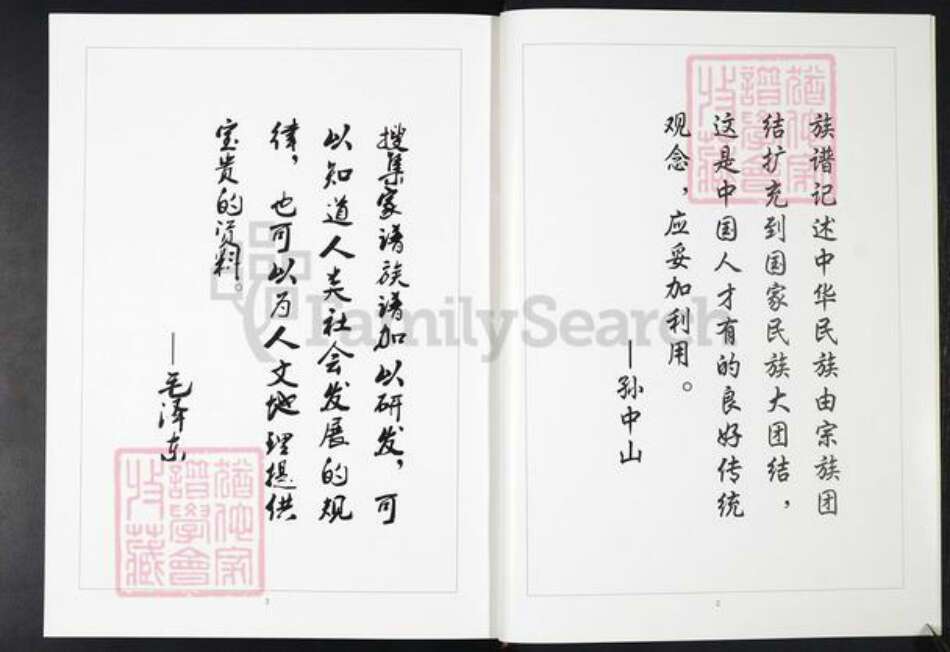 族谱记述中华民族由宗族团
结扩充到国家民族大团结，
这是中国人才有的良好传统
观念，应妥加利用。
—孙中山
2
搜集家谱族谱加以研发，可
以知道人类社会发展的规
律，也可以为人文地理提供
宝贵的资料。
—毛泽东
3
FamilySearch